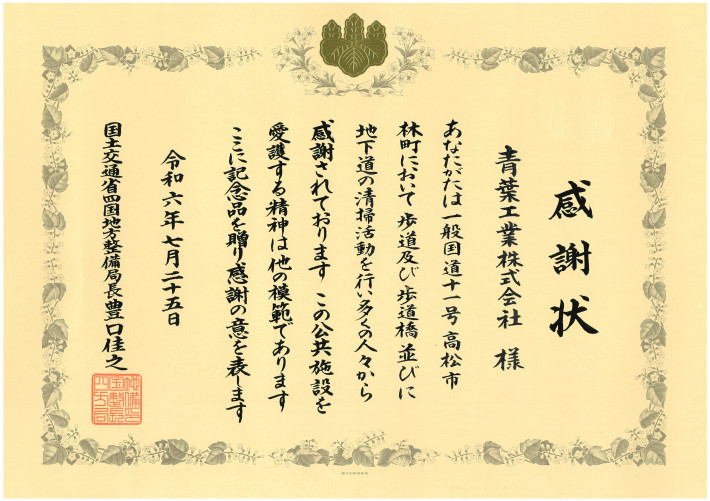 感謝状
青葉工業株式会社 様
あなたがたは一般国道十一号 高松市
林町において 歩道及び歩道橋 並びに
地下道の清掃活動を行い多くの人々から
感謝されております この公共施設を
愛護する精神は他の模範であります
ここに記念品を贈り感謝の意を表します
令和六年七月二十五日
国土交通省四国地方整備局長 豊口佳之